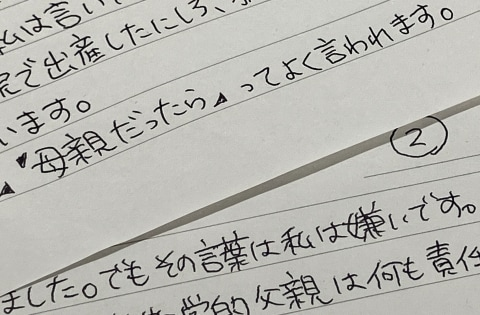 私は言い
で出産したにしろ、
います。
"母親だったら▲ってよく言われます。
②
ました。でもその言葉は私は嫌いです。
学的父親は何も責任